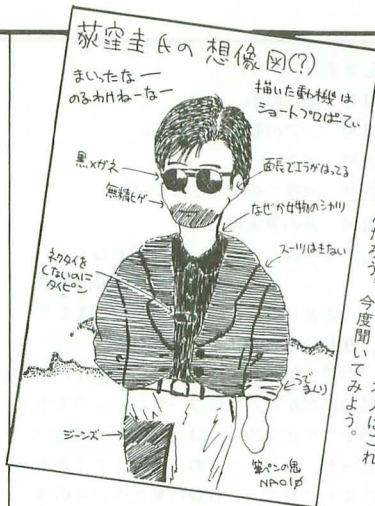 荻窪圭氏の想像図(?)
まいったなー
のるわけねーなー
描いた動機は
ショートプロぱてぃ
黒メガネ
無精ヒゲ
面長でエラがはってる
なぜか女物の
スーツはきない
ネクタイを
しないのに
タイピン
うでまくり
ジーンズ
筆ペンの鬼
今度聞いてみよう。